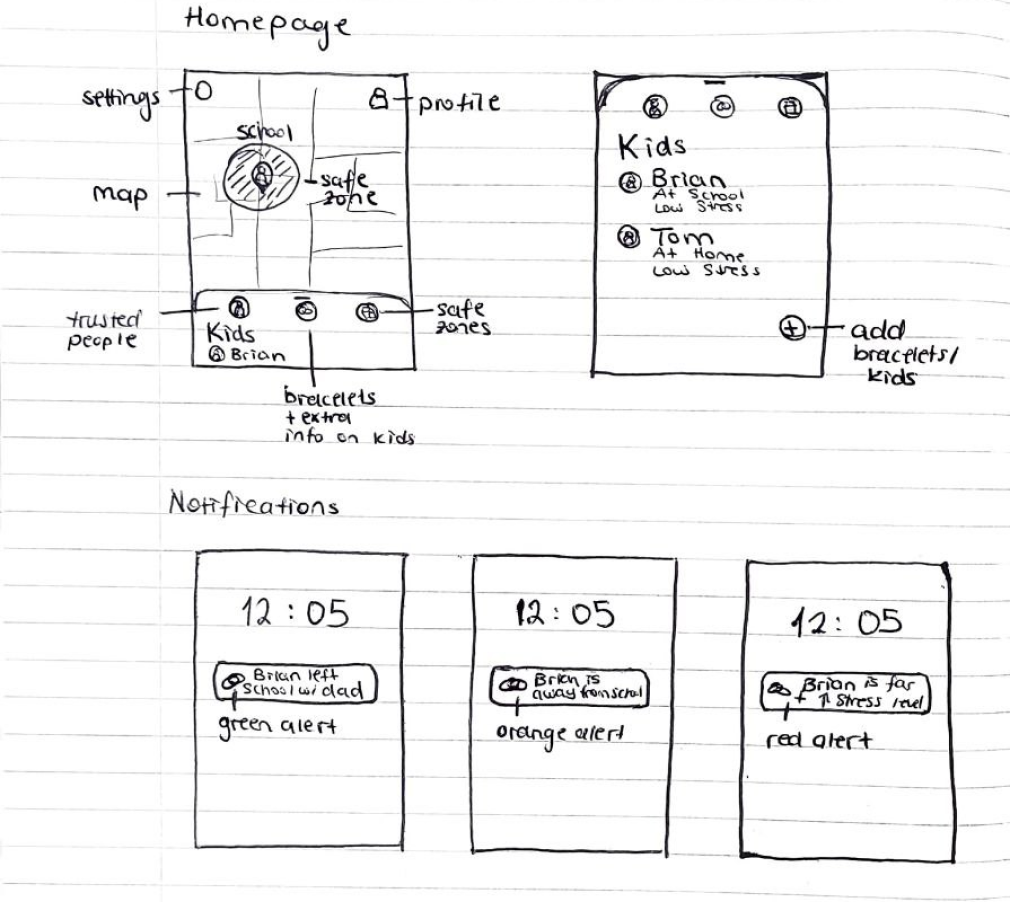 Homepage
settings
profile
school
safe
zone
map
trusted
people
Kids
Brian
safe
zones
bracelets
+ extra
info on kids
Kids
Brian
At School
Low Stress
Tom
At Home
Low Stress
+
add
bracelets/
kids
Notifications
12:05
Brian left
school w/ dad
green alert
12:05
Brian is
away from school
orange alert
12:05
Brian is far
+ ↑ Stress level
red alert